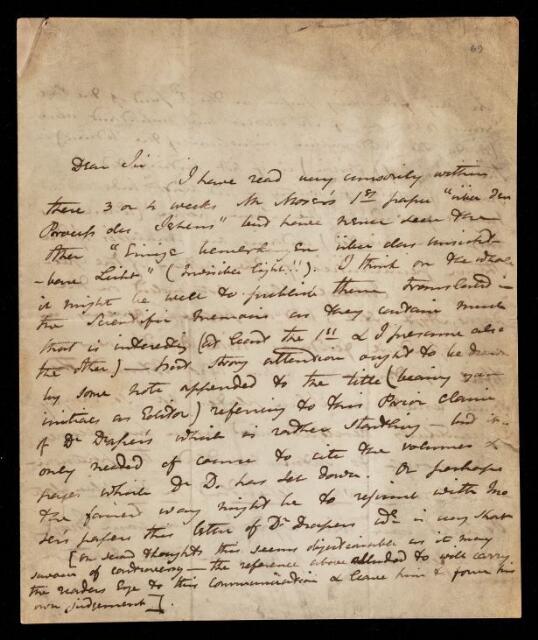 69
Dear Sir I have read very cursorily within
these 3 or 4 weeks Mr Moser's 1st paper "über den
Process des Sehens" but have never seen the
other "Einige bemerk en über das unsicht-
-bare Licht" (Invisible light!!). I think on the whole
it might be well to publish them translated in
the Scientific Memoirs as they contain much
that is interesting (at least the 1st & I presume also
the other) — but strong attention ought to be drawn
by some note appended to the title (bearing your
initials as Editor) referring to this Prior claim
of Dr Draper's which is rather startling — but it is
only needed of course to cite the volumes &
pages which Dr D. has set down. Or perhaps
the fairest way might be to reprint with Mo
ser's papers this letter of Dr Drapers wh is very short
[on second thoughts this seems objectionable as it may
savour of controversy — the reference above alluded to will carry
the readers Eye to this Communication & leave him to form his
own judgement].